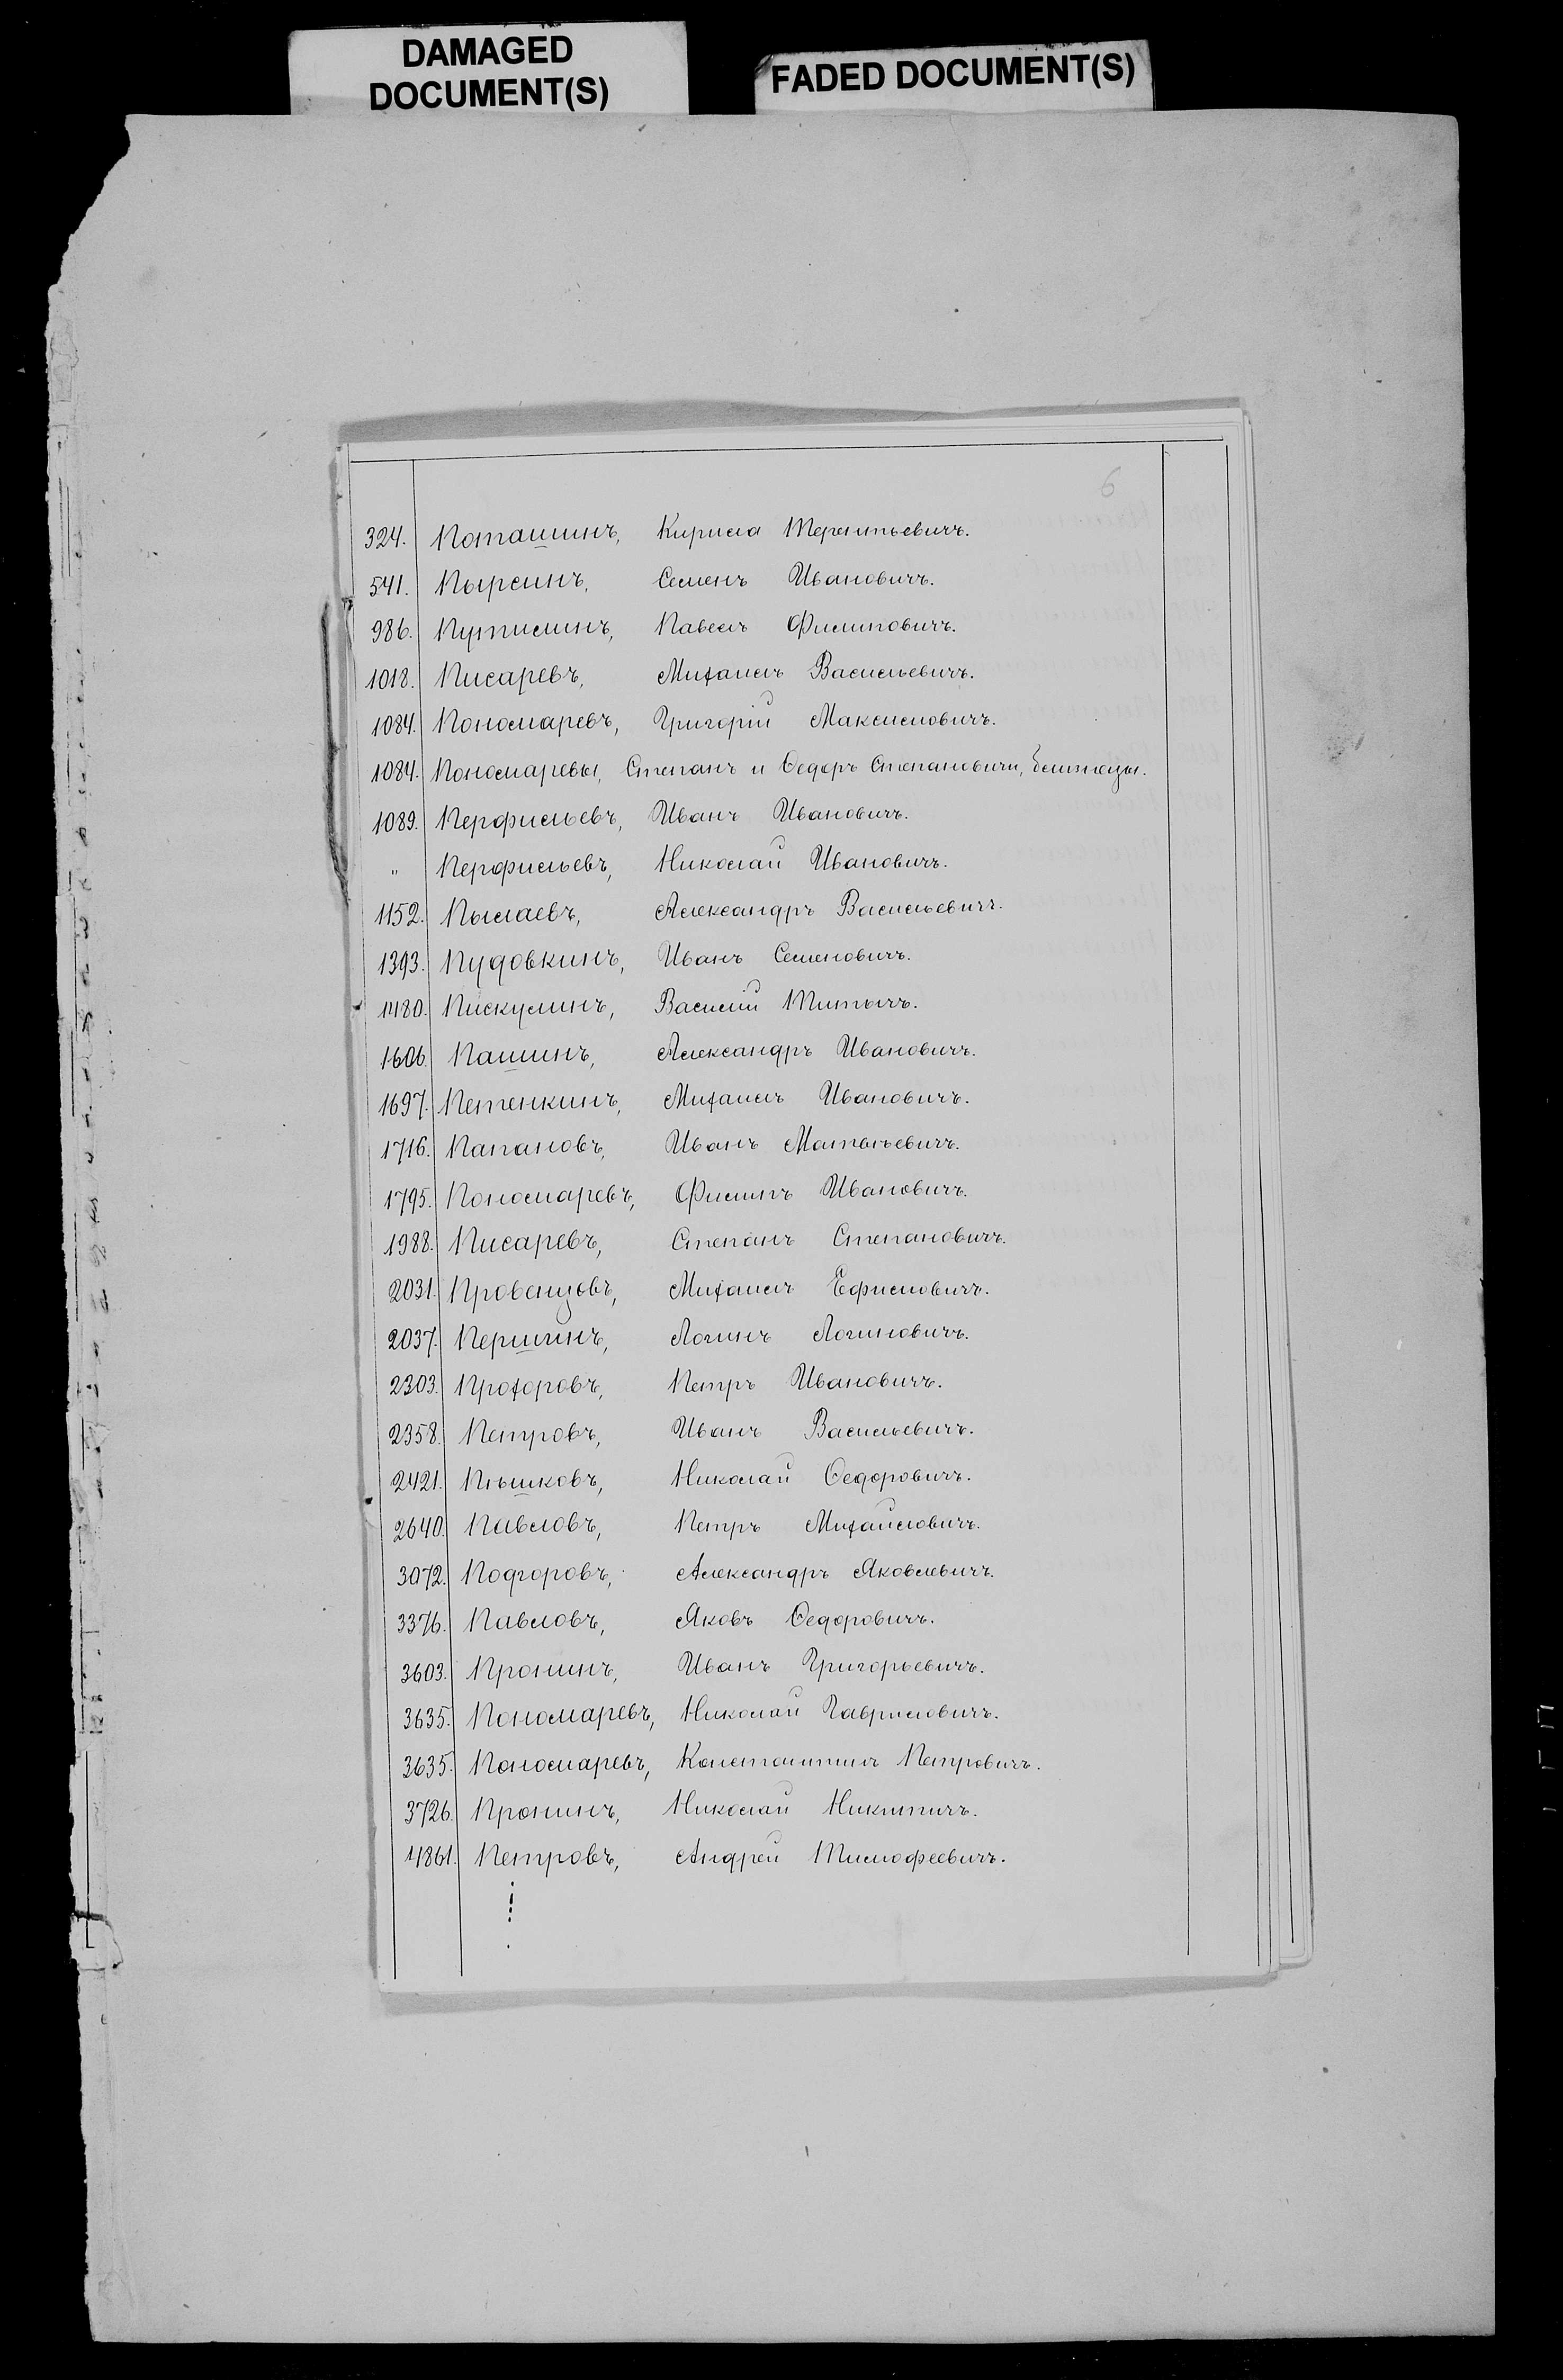 DAMAGED
DOCUMENT(S)
FADED DOCUMENT(S)
6
324. Поташинъ, Кирила Терентьевичъ.
541. Пырсинъ, Семенъ Ивановичъ.
986. Путилинъ, Павелъ Филиповичъ.
1018. Писаревъ, Михаилъ Васильевичъ.
1084. Пономаревъ, Григорій Максимовичъ.
1084. Пономаревы, Степанъ и Ѳедоръ Степановичи,
1089. Перфильевъ, Иванъ Ивановичъ.
„ Перфильевъ, Николай Ивановичъ.
1152. Пылаевъ, Александръ Васильевичъ.
1393. Пудовкинъ, Иванъ Семеновичъ.
1480. Пискулинъ, Василій Титычъ.
1606. Пашинъ, Александръ Ивановичъ.
1697. Петенкинъ, Михаилъ Ивановичъ.
1716. Папановъ, Иванъ Матвѣевичъ.
1795. Пономаревъ, Филипъ Ивановичъ.
1988. Писаревъ, Степанъ Степановичъ.
2031. Прованцовъ, Михаилъ Ефимовичъ.
2037. Першинъ, Логинъ Логиновичъ.
2303. Прохоровъ, Петръ Ивановичъ.
2358. Петровъ, Иванъ Васильевичъ.
2421. Пѣшковъ, Николай Ѳедоровичъ.
2640. Павловъ, Петръ Михайловичъ.
3072. Подгоровъ, Александръ Яковлевичъ.
3376. Павловъ, Яковъ Ѳедоровичъ.
3603. Пронинъ, Иванъ Григорьевичъ.
3635. Пономаревъ, Николай Гавриловичъ.
3635. Пономаревъ, Константинъ Петровичъ.
3726. Пронинъ, Николай Никитичъ.
4861. Петровъ, Андрей Тимофеевичъ.